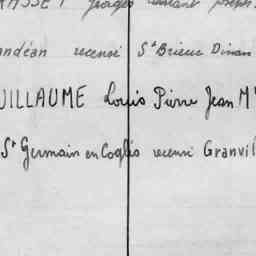 Georges
andéan recensé St Brieuc Dinan
UILLAUME Louis Pierre Jean M
St Germain en Coglès recensé Granvil